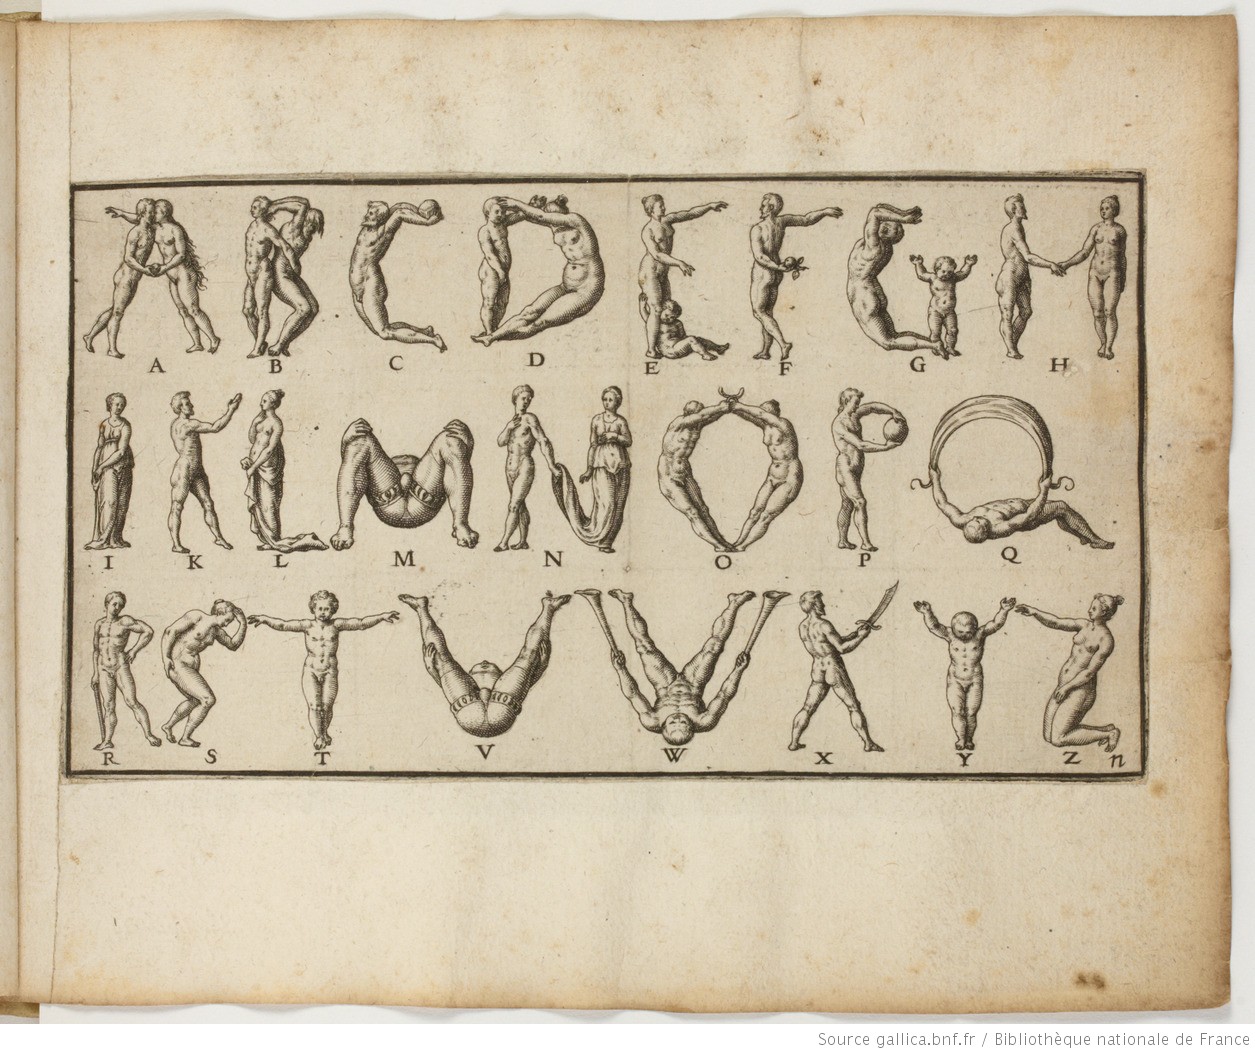 A B C D E F G H
I K L M N O P Q
R S T V W X Y Z n
Source gallica.bnf.fr / Bibliothèque nationale de France